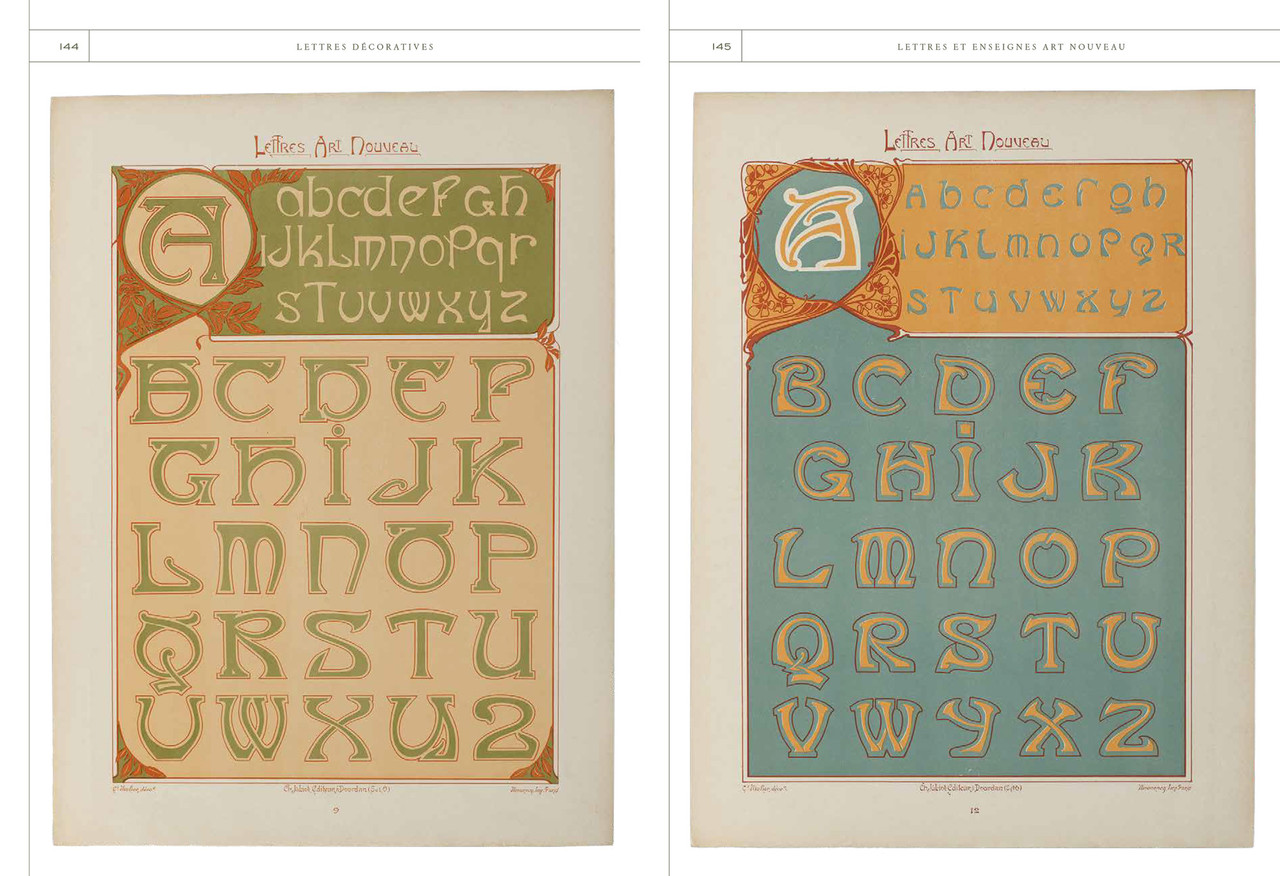 144
LETTRES DÉCORATIVES
LETTRES ART NOUVEAU
A
abcdefGh
iJkLmnoPqr
sTuvwxyz
B C D E F
G H i J K
L M N O P
Q R S T U
V W X Y Z
Editeur, à Dourdan (S&O)
9
145
LETTRES ET ENSEIGNES ART NOUVEAU
LETTRES ART NOUVEAU
A
Abcdefgh
iJKLmnoPQR
sTuvwxyz
B C D E F
G H i J K
L M N O P
Q R S T U
V W Y X Z
Editeur, à Dourdan (S&O)
12